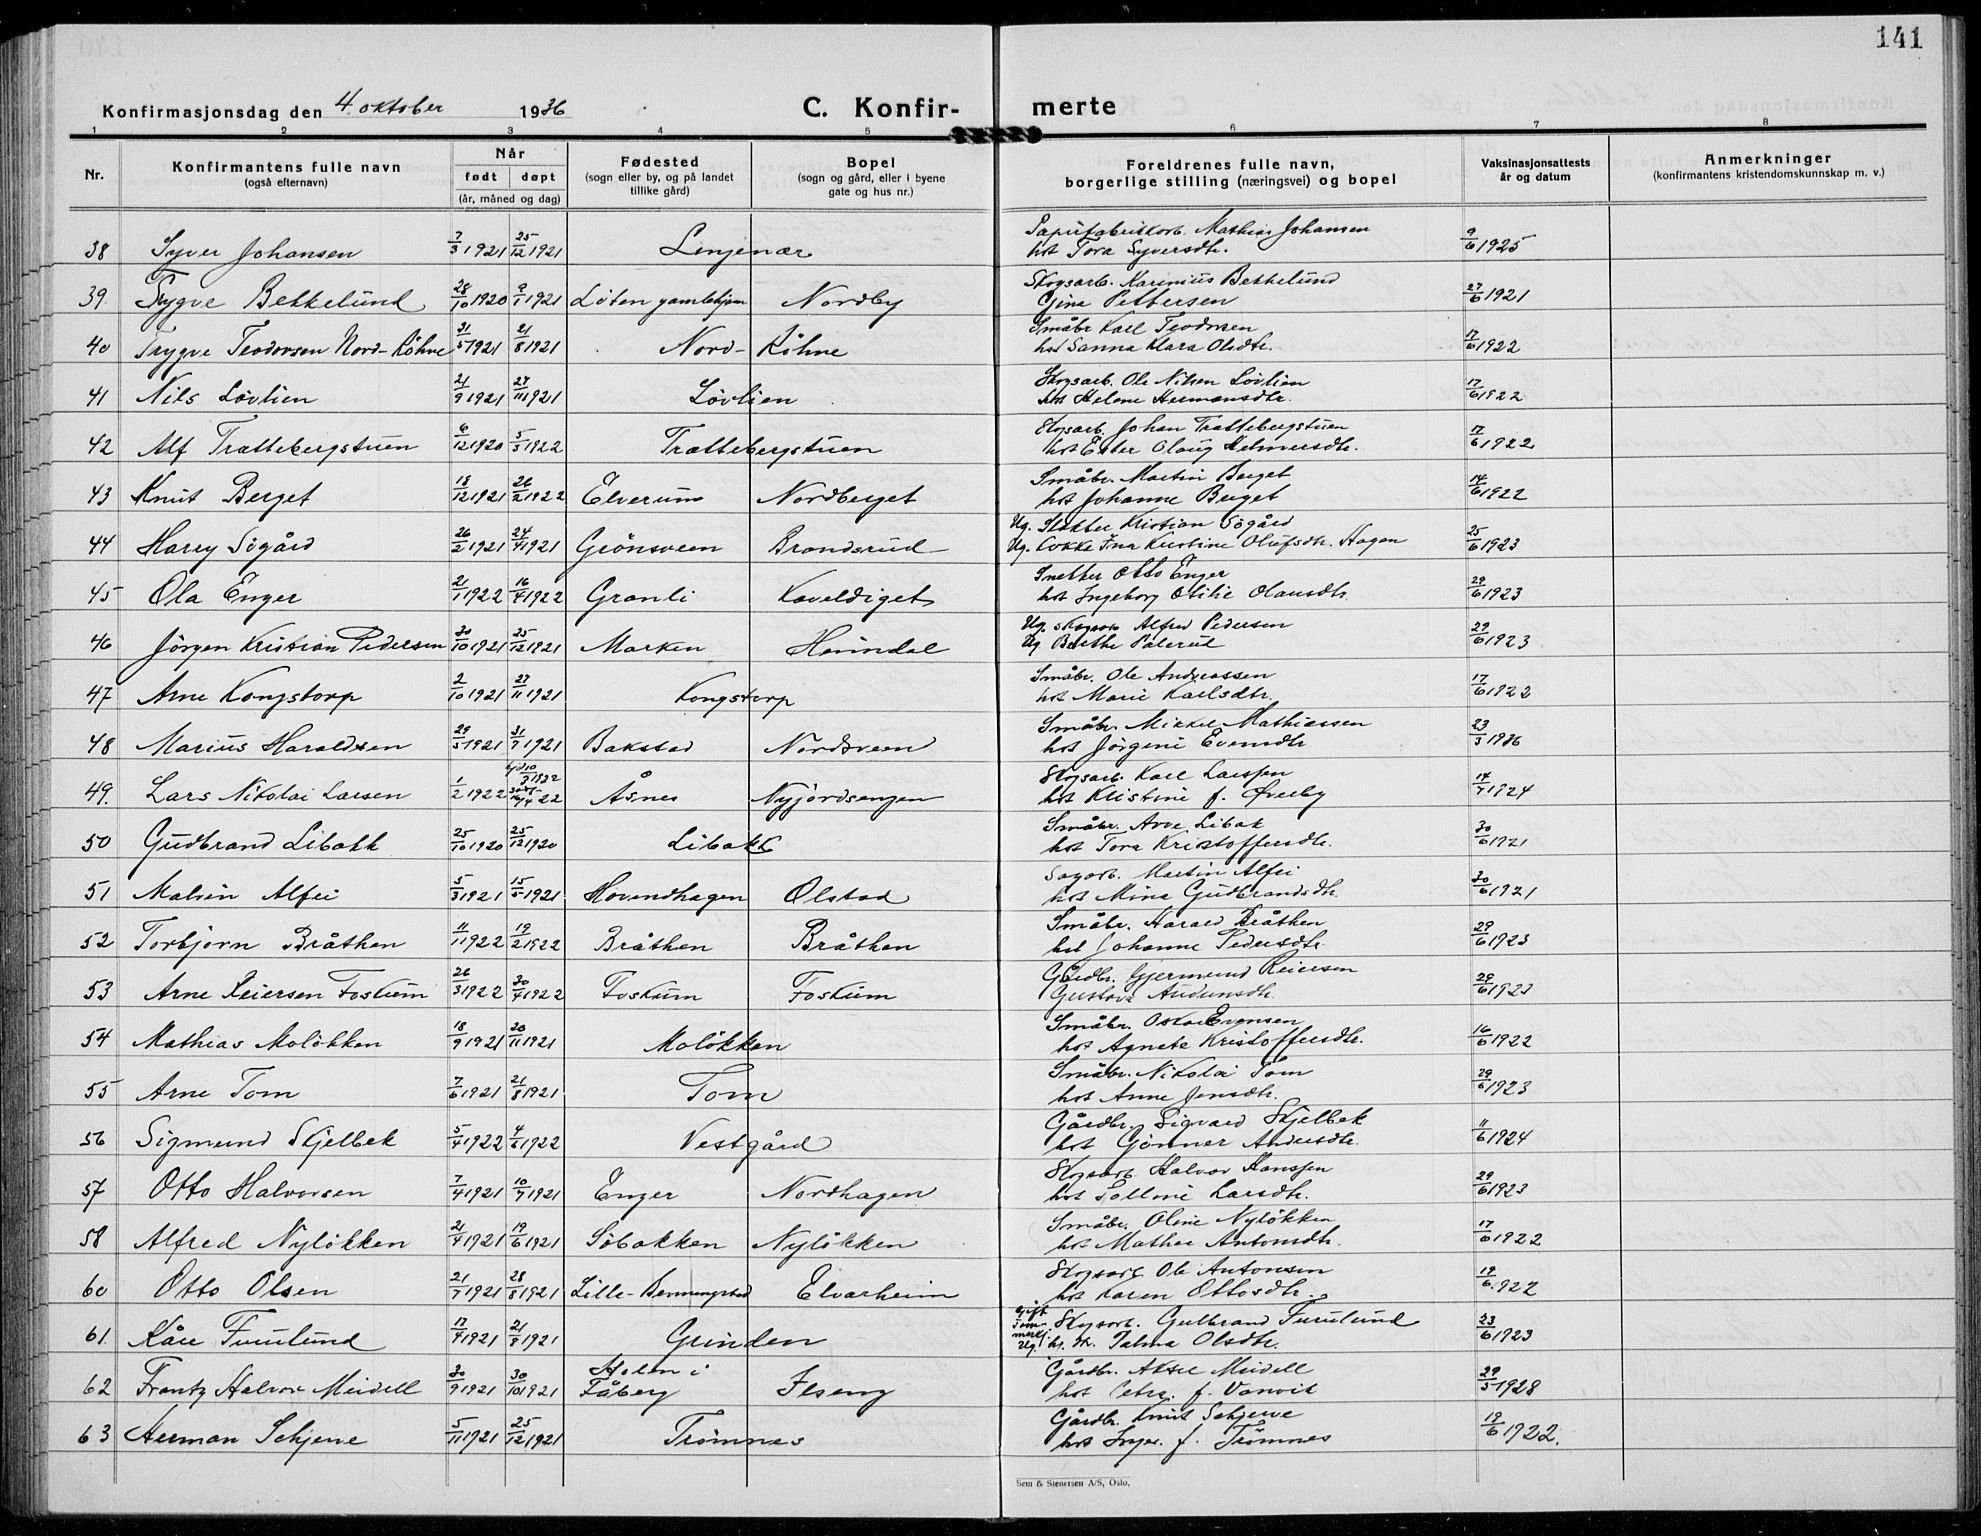 141
Konfirmasjonsdag den 4. oktober 1936
C. Konfir- merte
1 2 3 4 5 6 7 8
Nr.
Konfirmantens fulle navn
(også efternavn)
Når
født døpt
(år, måned og dag)
Fødested
(sogn eller by, og på landet
tillike gård)
Bopel
(sogn og gård, eller i byene
gate og hus nr.)
Foreldrenes fulle navn,
borgerlige stilling (næringsvei) og bopel
Vaksinasjonsattests
år og datum
Anmerkninger
(konfirmantens kristendomskunnskap m. v.)
Mathias Johansen
38 Syver Johansen 7/3 1921 25/12 1921 hst Tora Syversdtr. 9/6 1925
Skogsarb. Karinius Bekkelund
39. Trygve Bekkelund 28/10 1920 9/1 1921 Løten gamlehjem Nordby Gina Pettersen 27/6 1921
Småbr Karl Teodorsen
40 Trygve Teodorsen Nord-Köhne 31/5 1921 21/8 1921 Nord-Köhne hst Sanna Klara Olsdtr. 17/6 1922
Skogsarb. Ole Nilsen Lövlien
41 Nils Lövlien 21/9 1921 27/11 1921 Lövlien hst Helene Hermansdtr. 17/6 1922
Skogsarb. Johan Trættebergstuen
42 Alf Trættebergstuen 6/12 1920 5/3 1922 Trættebergstuen hst Ester Olaug Helmersdtr. 17/6 1922
Småbr. Martin Berget
43 Knut Berget 18/12 1921 26/2 1922 Elverum Nordberget hst Johanne Berget 14/6 1922
Ug. Slakter Kristian Sögård
44 Harry Sögård 26/2 1921 24/4 1921 Grönsveen Brandsrud Ug. Kokke Ina Kristine Olufsdtr. Hagen 25/6 1923
Snekker Otto Enger
45 Ola Enger 21/1 1922 16/4 1922 Granli Kaveldiget hst Ingeborg Otilie Olausdtr. 29/6 1923
Ug. skogsarb Alfred Pedersen
46 Jörgen Kristian Pedersen 30/10 1921 25/12 1921 Marken Ug Berthe Palerud 29/6 1923
Småbr. Ole Andreassen
47 Arne Kongstorp 2/10 1921 27/11 1921 Kongstorp hst Marie Karlsdtr. 17/6 1922
Småbr. Mikkel Mathiassen
48 Marius Haraldsen 29/5 1921 31/7 1921 Bakstad Nordsveen hst Jörgine Evensdtr 23/3 1936
Skogsarb. Karl Larssen
49. Lars Nikolai Larsen 1/2 1922 Åsnes Nyjordsengen hst Kristine f. Øverby 14/7 1924
Småbr. Arve Libak
50 Gudbrand Libakk 25/10 1920 25/12 1920 Libakk hst Tora Kristoffersdtr. 30/6 1921
Sagarb. Martin Alfei
51 Malvin Alfei 5/3 1921 15/5 1921 Hovindhagen Ølstad hst Mina Gudbrandsdtr. 30/6 1921
Småbr. Harald Bråthen
52 Torbjørn Bråthen 11/11 1922 19/2 1922 Bråthen Bråthen hst Johanne Pedersdtr. 29/6 1923
Gårdbr. Gjermund Reiersen
53 Arne Reiersen Foskum 26/3 1922 30/4 1922 Foskum Foskum Gustava Audunsdtr. 29/6 1923
Småbr. Oskar Evensen
54 Mathias Molökken 18/9 1921 20/11 1921 Molökken hst Agnete Kristoffersdtr. 16/6 1922
Småbr. Nikolai Tom
55 Arne Tom 7/6 1921 21/8 1921 Tom hst Anne Jensdtr. 29/6 1923
Gårdbr. Sigvard Skjelbek
56 Sigmund Skjelbek 5/4 1922 4/6 1922 Vestgård hst Gönner Andersdtr. 11/6 1924
Skogsarb Halvor Hanssen
57 Otto Halvorsen 7/4 1921 10/7 1921 Enger Nordhagen hst Larsdtr. 29/6 1923
Småbr. Oline Nylökken
58 Alfred Nylökken 21/4 1921 19/6 1921 Söbakken Nylökken hst Mathea Antonsdtr. 17/6 1922
Skogsarb Ole Antonsen
60 Otto Olsen 21/7 1921 28/8 1921 Elvarheim hst Karen Ottosdtr. 19/6 1922
gift Tömmerkj. Skogsarb. Gulbrand Furulund
61. Kåre Furulund 17/4 1921 21/8 1921 Grinden Ug. Palma Olsdtr. 23/6 1923
Gårdbr. Aksel Meidell
62 Frantz Halvor Meidell 30/9 1921 30/10 1921 Holen i Fåberg Ilseng hst Petra f. Vanvik 29/5 1928
Gårdbr. Knut Schjerve
63 Herman Schjerve 5/11 1921 25/12 1921 Trömnes hst Inger f. Trömnes 19/6 1922.
Sem & Stenersen A/S, Oslo.